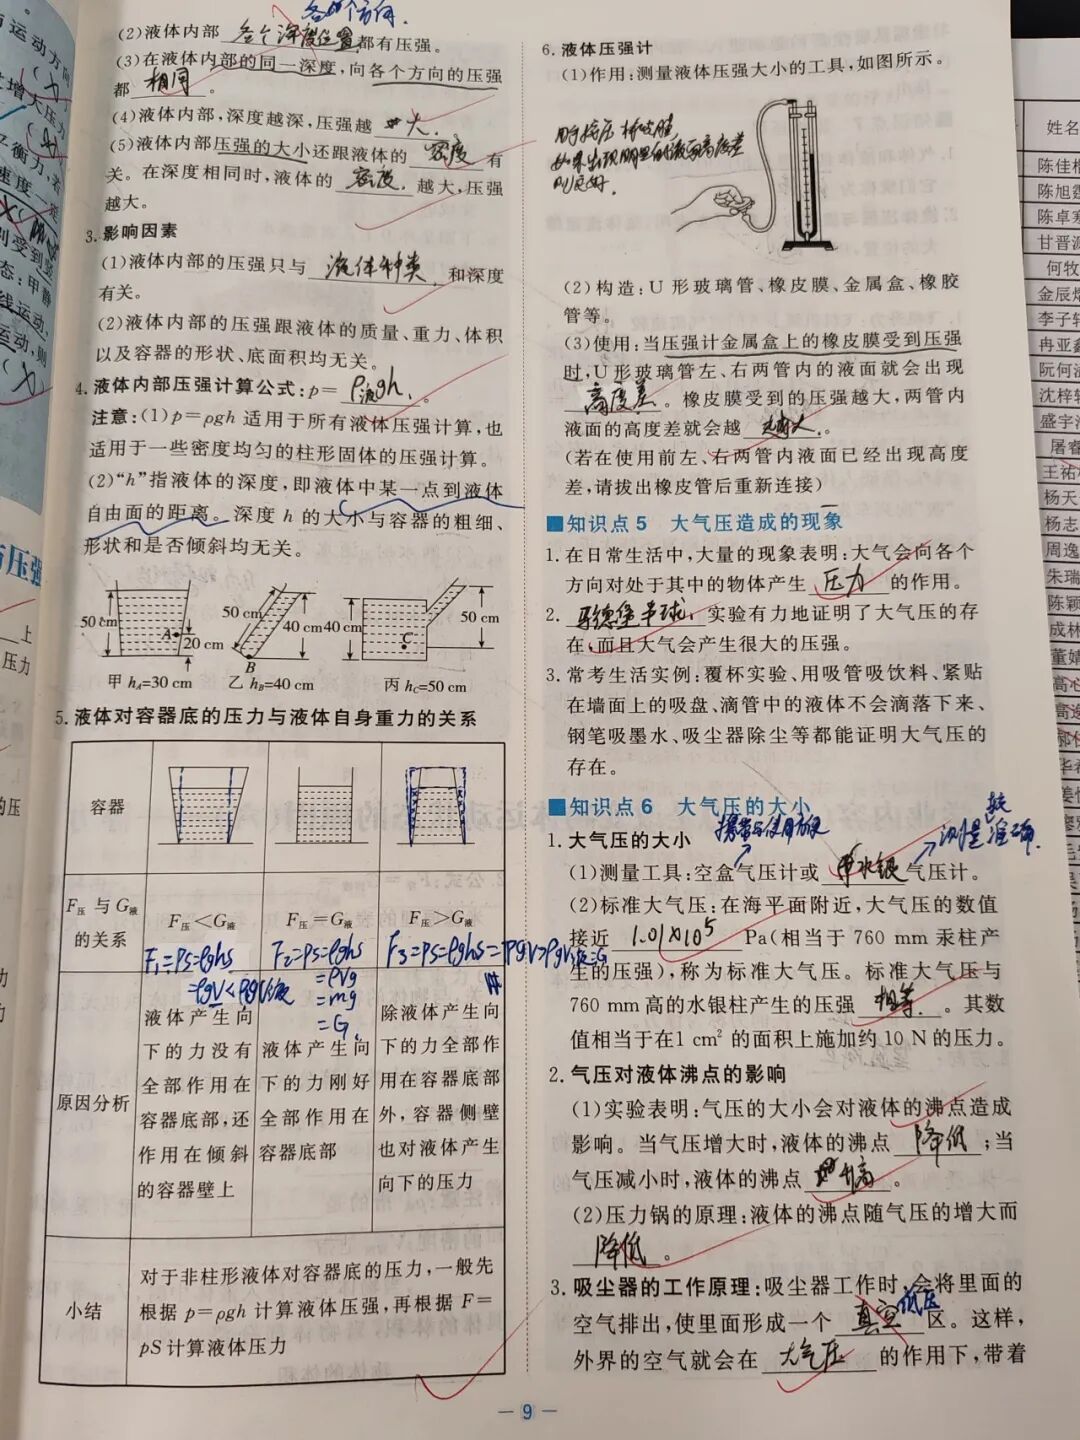 各个方向.
(2)液体内部 各个深度位置 都有压强。
(3)在液体内部的同一深度,向各个方向的压强
都 相同 。
(4)液体内部,深度越深,压强越 大.
(5)液体内部压强的大小还跟液体的 密度 有
关。在深度相同时,液体的 密度. 越大,压强
越大。
3.影响因素
(1)液体内部的压强只与 液体种类. 和深度
有关。
(2)液体内部的压强跟液体的质量、重力、体积
以及容器的形状、底面积均无关。
4.液体内部压强计算公式:p= ρ液gh. 。
注意:(1)p=ρgh 适用于所有液体压强计算,也
适用于一些密度均匀的柱形固体的压强计算。
(2)“h”指液体的深度,即液体中某一点到液体
自由面的距离。深度 h 的大小与容器的粗细、
形状和是否倾斜均无关。
50 cm A 20 cm 50 cm 40 cm B 40 cm C 50 cm
甲 hA=30 cm 乙 hB=40 cm 丙 hC=50 cm
5.液体对容器底的压力与液体自身重力的关系
容器
F压 与 G液
的关系
F压<G液 F压=G液 F压>G液
F1=PS=ρghs F2=PS=ρghs F3=PS=ρghs=ρgV>ρgV液=G
=ρgV<ρgV液 =ρVg
=mg
=G.
原因分析
液体产生向
下的力没有
全部作用在
容器底部,还
作用在倾斜
的容器壁上
液体产生向
下的力刚好
全部作用在
容器底部
除液体产生向
下的力全部作
用在容器底部
外,容器侧壁
也对液体产生
向下的压力
小结
对于非柱形液体对容器底的压力,一般先
根据 p=ρgh 计算液体压强,再根据 F=
pS 计算液体压力
6.液体压强计
(1)作用:测量液体压强大小的工具,如图所示。
用手按压橡皮膜
如果出现明显的液面高度差
则良好.
(2)构造:U 形玻璃管、橡皮膜、金属盒、橡胶
管等。
(3)使用:当压强计金属盒上的橡皮膜受到压强
时,U 形玻璃管左、右两管内的液面就会出现
高度差 。橡皮膜受到的压强越大,两管内
液面的高度差就会越 越大. 。
(若在使用前左、右两管内液面已经出现高度
差,请拔出橡皮管后重新连接)
知识点5 大气压造成的现象
1.在日常生活中,大量的现象表明:大气会向各个
方向对处于其中的物体产生 压力 的作用。
2. 马德堡半球. 实验有力地证明了大气压的存
在,而且大气会产生很大的压强。
3.常考生活实例:覆杯实验、用吸管吸饮料、紧贴
在墙面上的吸盘、滴管中的液体不会滴落下来、
钢笔吸墨水、吸尘器除尘等都能证明大气压的
存在。
知识点6 大气压的大小
1.大气压的大小 携带与使用方便 测量 准确.
(1)测量工具:空盒气压计或 水银 气压计。
(2)标准大气压:在海平面附近,大气压的数值
接近 1.01×10⁵ Pa(相当于 760 mm 汞柱产
生的压强),称为标准大气压。标准大气压与
760 mm 高的水银柱产生的压强 相等. 。其数
值相当于在1 cm² 的面积上施加约 10 N 的压力。
2.气压对液体沸点的影响
(1)实验表明:气压的大小会对液体的沸点造成
影响。当气压增大时,液体的沸点 降低 ;当
气压减小时,液体的沸点 升高 。
(2)压力锅的原理:液体的沸点随气压的增大而
降低 。
3.吸尘器的工作原理:吸尘器工作时,会将里面的
空气排出,使里面形成一个 真空 低压 区。这样,
外界的空气就会在 大气压 的作用下,带着
— 9 —
姓名
陈佳
陈旭
陈卓
甘晋源
何牧
金辰
李子
冉亚
阮何
沈梓
盛宇
屠睿
王祐
杨天
杨志
周逸
朱瑞
陈颖
成林
董婧
高心
高逸